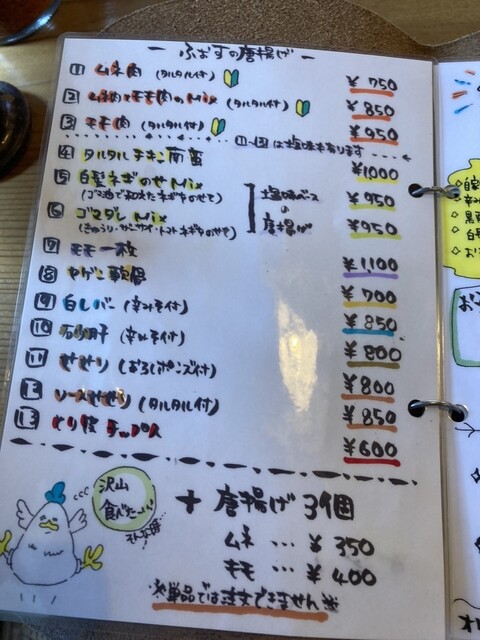 ー ふぉすの唐揚げ ー
1 ムネ肉 (タルタル付) ¥750
2 ムネ肉とモモ肉のMix (タルタル付) ¥850
3 モモ肉 (タルタル付) ¥950
①~③は塩味もあります
4 タルタルチキン南蛮 ¥1000
5 白髪ネギのせMix ¥950
(ゴマ油で和えたネギをのせて)
塩味ベースの唐揚げ
6 ゴマダレMix ¥950
(きゅうり・かにカマ・トマト ネギをのせて)
7 モモ一枚 ¥1,100
8 やげん軟骨 ¥700
9 白レバー (辛みそ付) ¥850
10 砂肝 (辛みそ付) ¥800
11 せせり (おろしポンズ付) ¥800
12 ソースせせり (タルタル付) ¥850
13 とり皮チップス ¥600
沢山
食べたーい
そんな時…
+ 唐揚げ 3個
ムネ … ¥350
モモ … ¥400
※単品では注文できません※